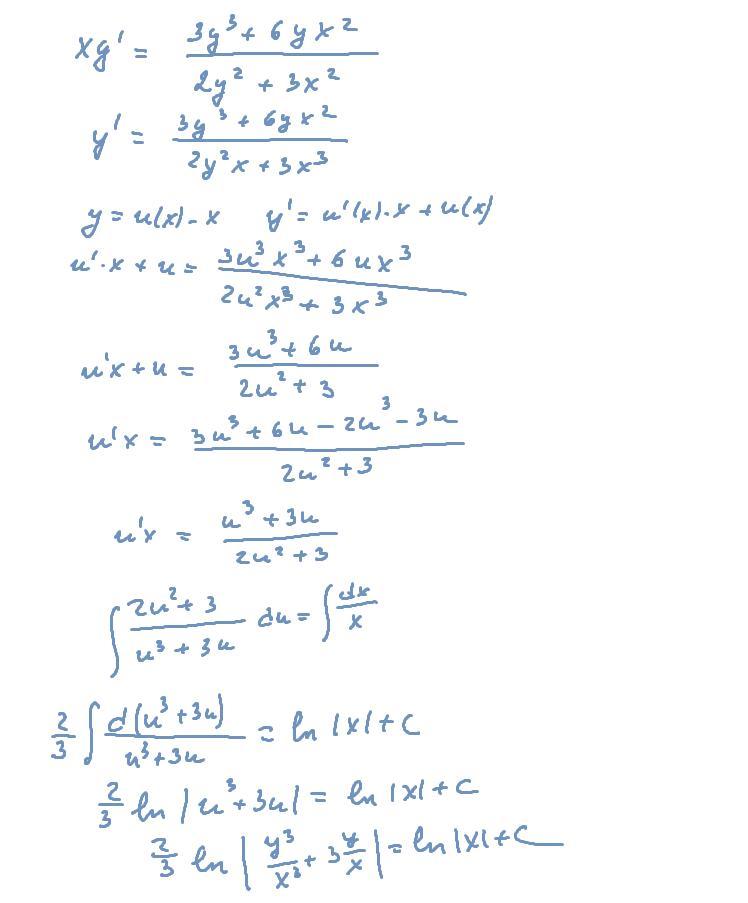 xy' = (3y³ + 6yx²) / (2y² + 3x²)
y' = (3y³ + 6yx²) / (2y²x + 3x³)
y = u(x)·x    y' = u'(x)·x + u(x)
u'·x + u = (3u³x³ + 6ux³) / (2u²x³ + 3x³)
u'x + u = (3u³ + 6u) / (2u² + 3)
u'x = (3u³ + 6u − 2u³ − 3u) / (2u² + 3)
u'x = (u³ + 3u) / (2u² + 3)
∫ (2u² + 3) / (u³ + 3u) du = ∫ dx/x
2/3 ∫ d(u³ + 3u) / (u³ + 3u) = ln |x| + C
2/3 ln |u³ + 3u| = ln |x| + C
2/3 ln | y³/x³ + 3 y/x | = ln |x| + C